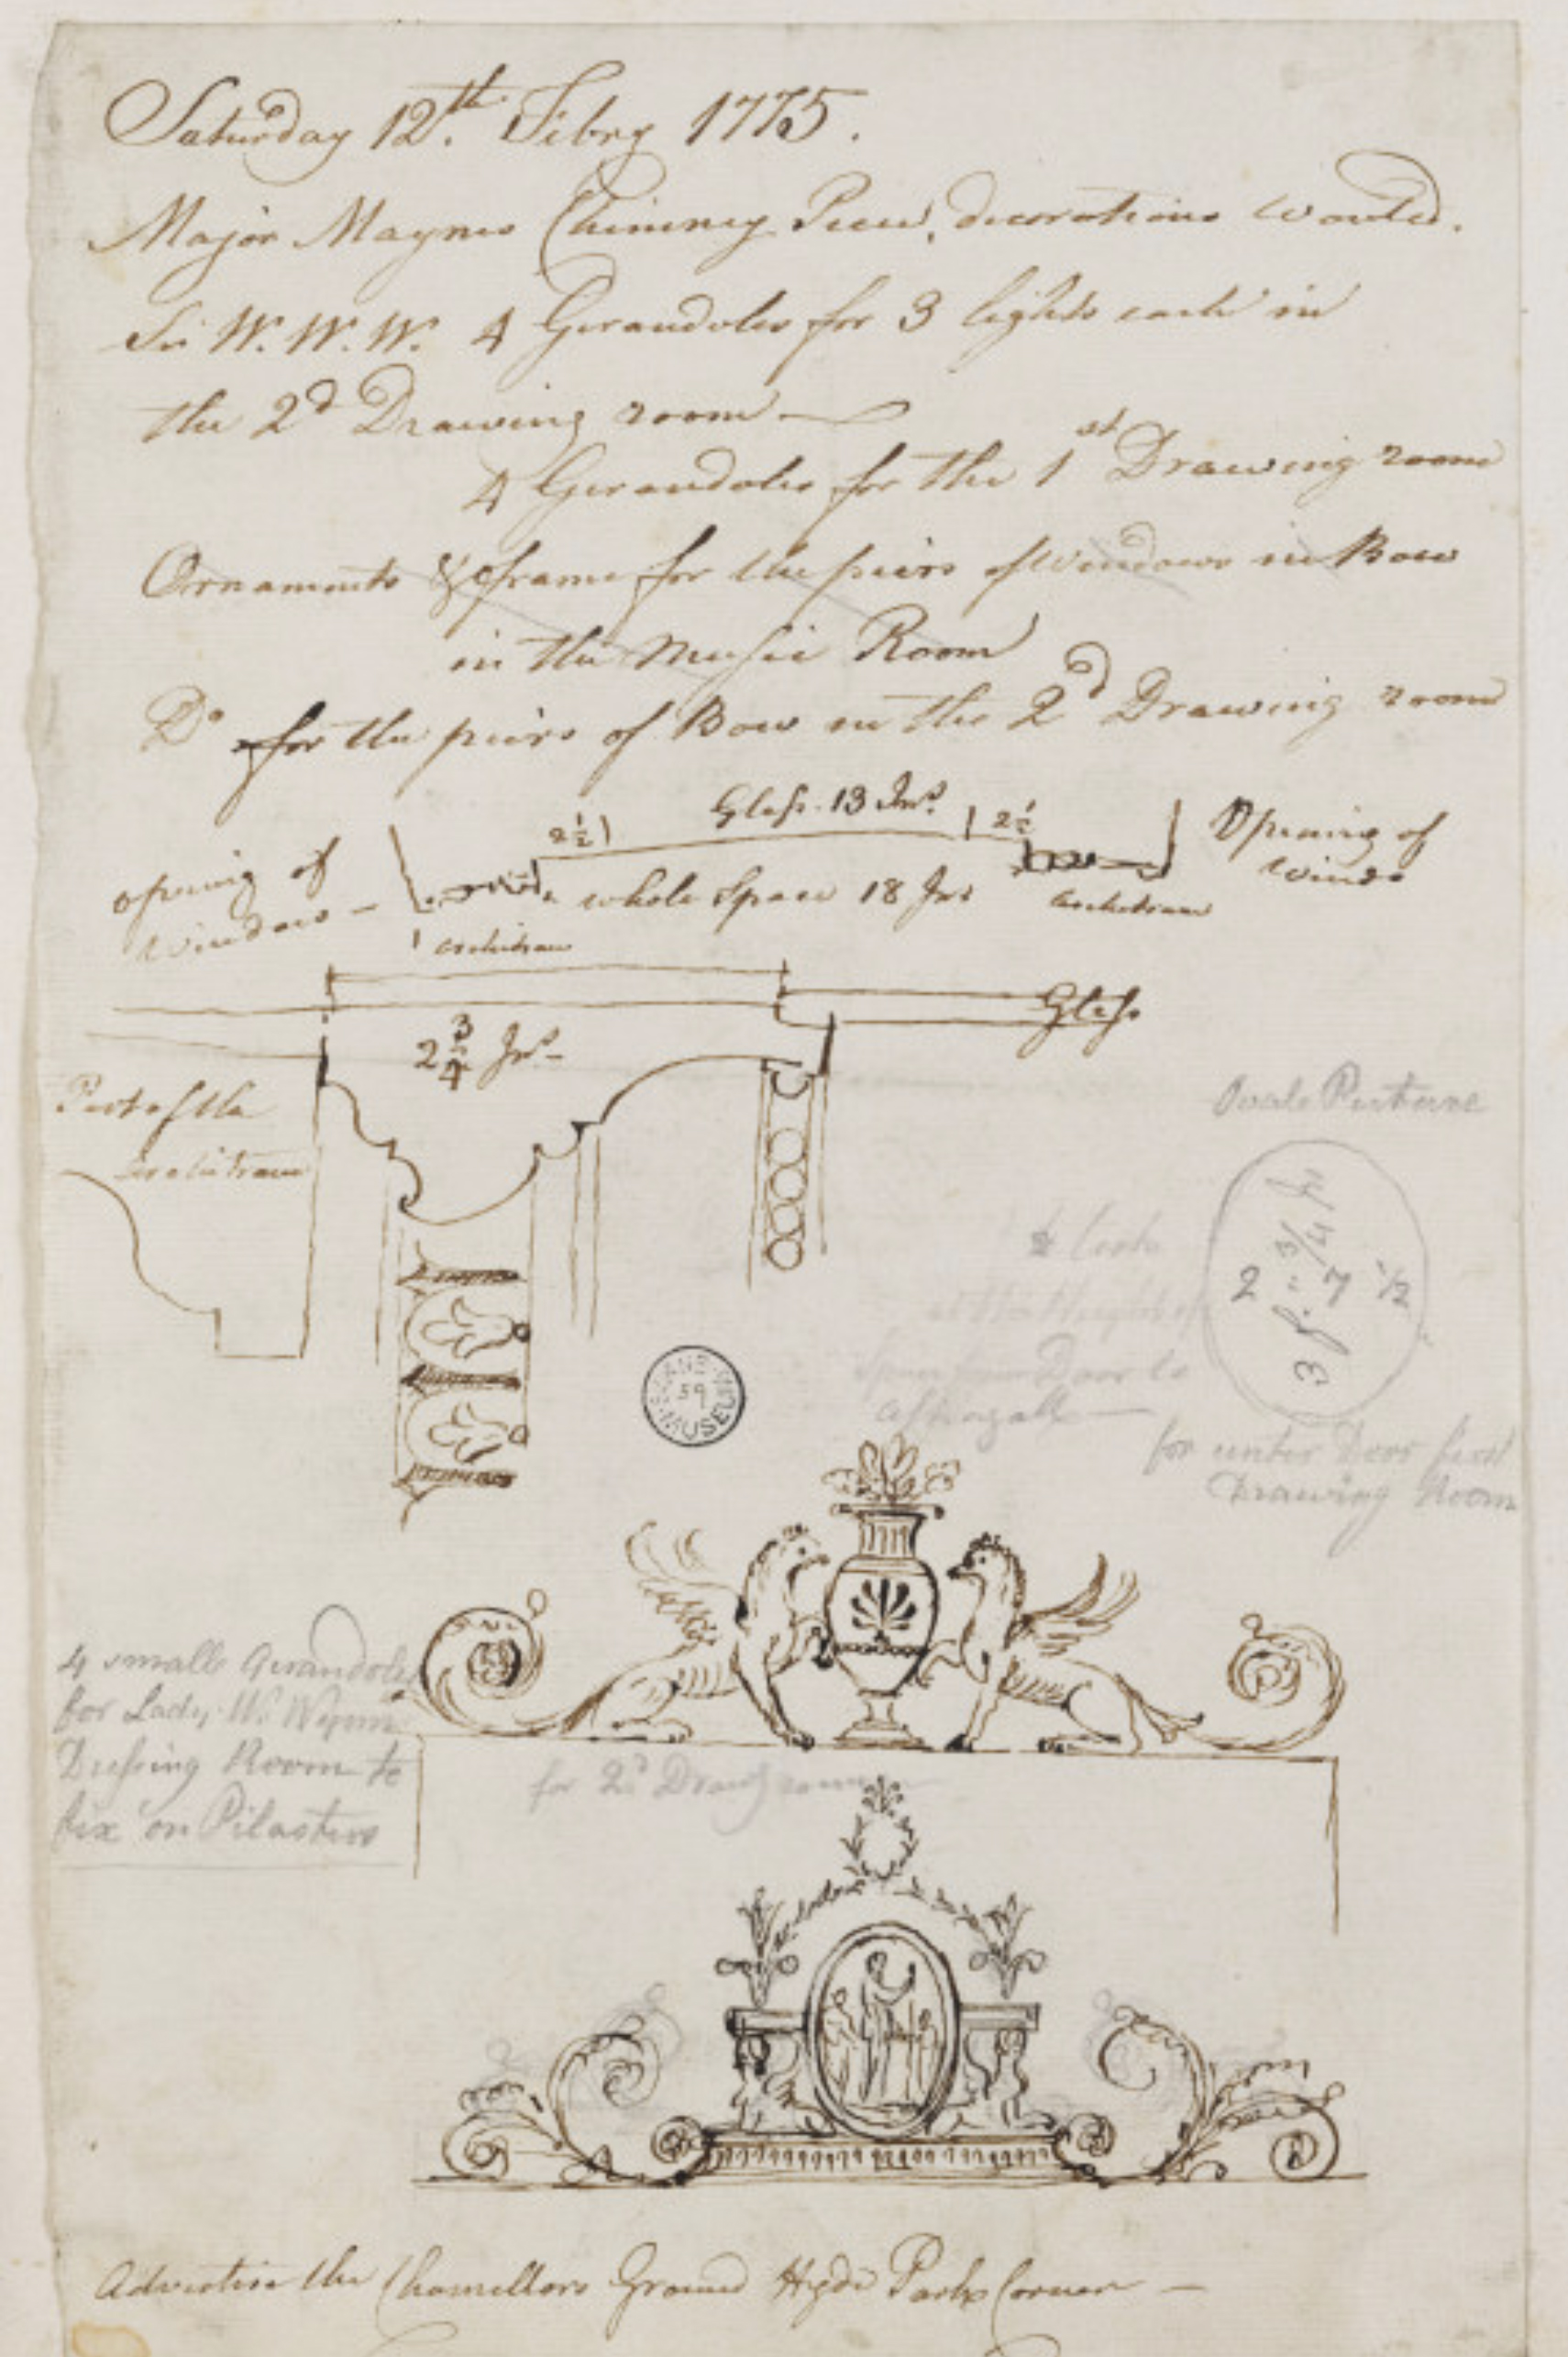 Saturday 12th. Febry 1775.
Major Maynes Chimney Piece, decorations wanted.
Sir W. W. W. 4 Girandoles for 3 lights each in
the 2d Drawing room
4 Girandoles for the 1st Drawing room
Ornaments & frame for the piers of Windows in Bow
in the Musick Room
Do for the piers of Bow in the 2d Drawing room
opening of
Window
2½
Glass 13 Ins.
2½
Opening of
Windo
whole Space 18 Ins
architrave
architrave
2¾ Ins
Glass
Part of the
Architrave
Ovale Picture
2 : 7 ½
3 f. ¾ In
Door to
for under Door first
Drawing Room
SOANE MUSEUM
59
4 small Girandoles
for Lady W. Wynns
Dressing Room to
fix on Pilasters
for 2d Drawg room
Advertise the Chancellors Ground Hyde Park Corner